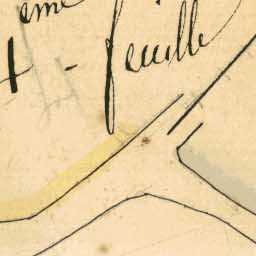 eme
4 - feuille